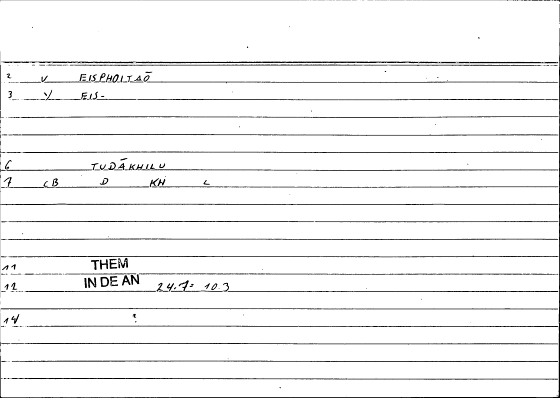 2 V EISPHOITAŌ
3 V EIS-
6 TUDĀKHILU
7 CB D KH L
11 THEM
12 IN DE AN 24.7: 103
14 ?